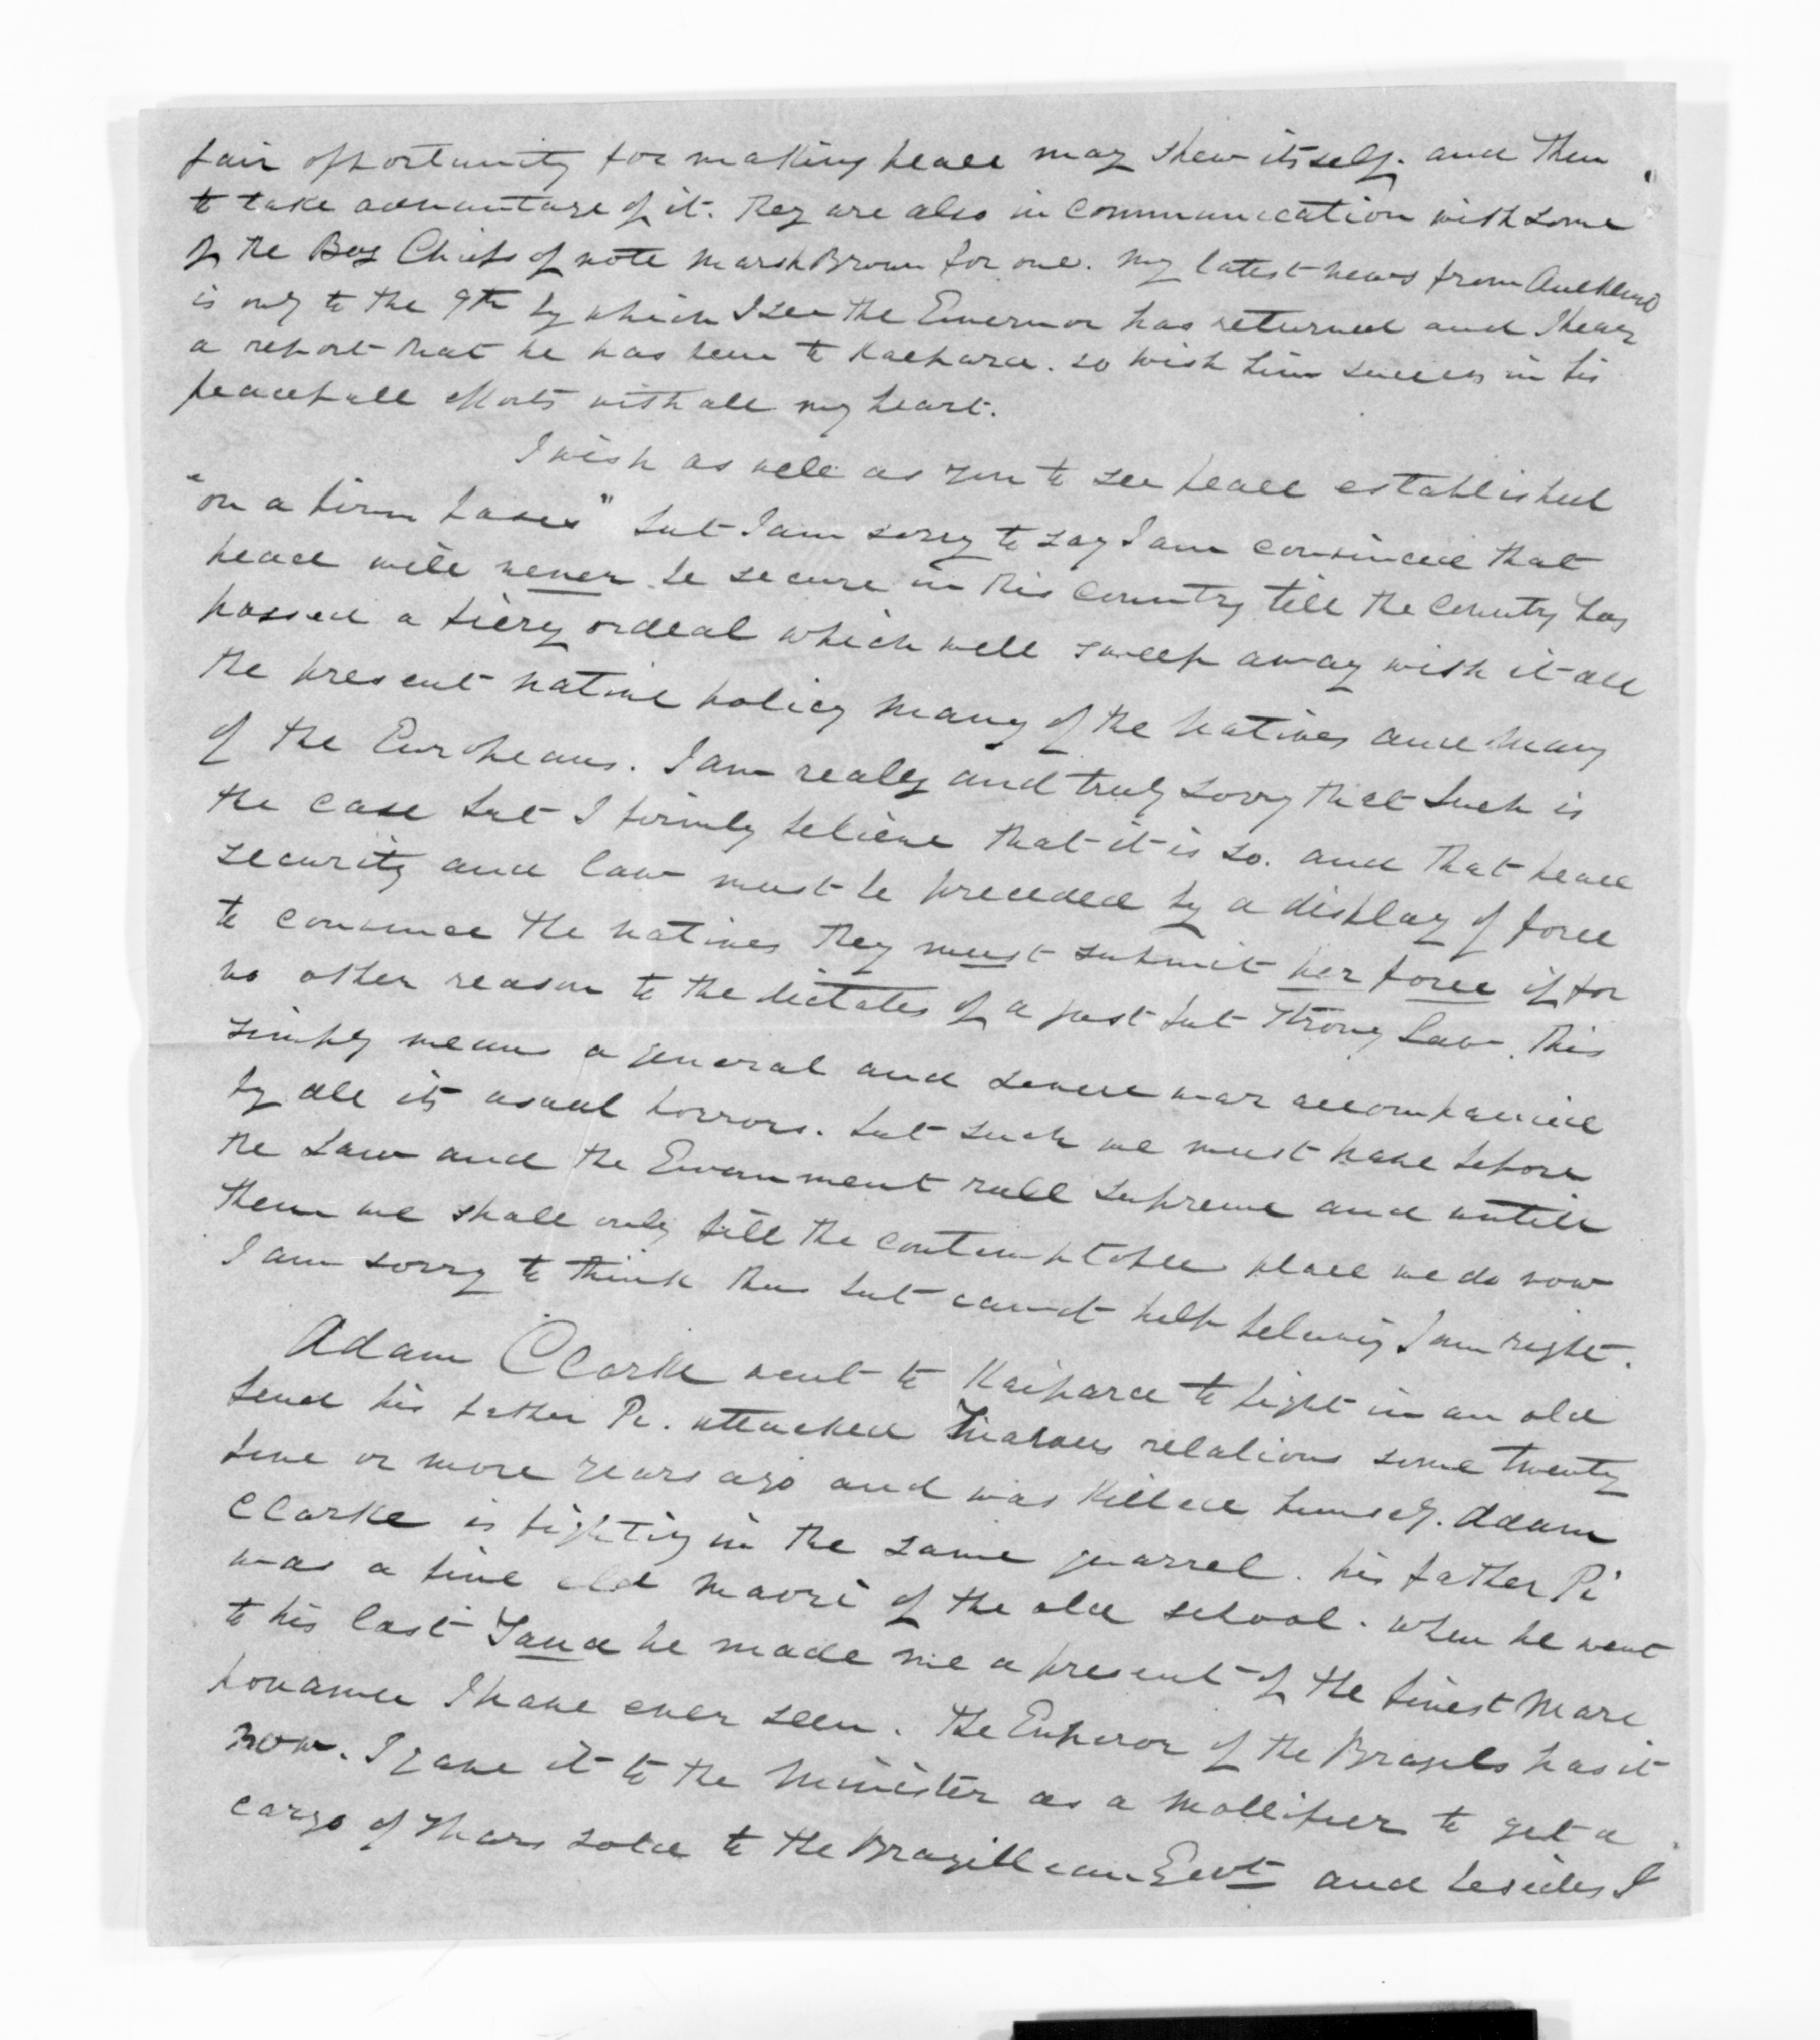 fair opportunity for making peace may shew itself. and then
to take advantage of it. They are also in communication with some
of the Bay Chiefs of note Marsh Brown for one. My latest news from Auckland
is only to the 9th by which I see the Governor has returned and I hear
a report that he has been to Kaipara. so wish him success in his
peacefull efforts with all my heart.
I wish as well as you to see peace established
"on a firm bases" but I am sorry to say I am convinced that
peace will never be secure in this country till the country has
passed a fiery ordeal which will sweep away with it all
the present native policy many of the natives and many
of the Europeans. I am realy and truly sorry that such is
the case but I firmly believe that it is so. and that peace
security and law must be preceded by a display of force
to convince the natives they must submit per force if for
no other reason to the dictates of a just but strong Law. This
simply means a general and severe war accompanied
by all its usual horrors. but such we must have before
the Law and the Government rule supreme and untill
then we shall only fill the contemptable place we do now
I am sorry to think thus but cannot help beleiving I am right.
Adam Clarke went to Kaipara to fight in an old
feud his father Pi. attacked Tiraraus relations some twenty
five or more years ago and was killed himself. Adam
Clarke is fighting in the same quarrel. his father Pi
was a fine old maori of the old school. when he went
to his last Taua he made me a present of the finest mare
pounamu I have ever seen. The Emperor of the Brazils has it
now. I gave it to the Minister as a mollifier to get a
cargo of spars sold to the Brazillian Govt and besides I